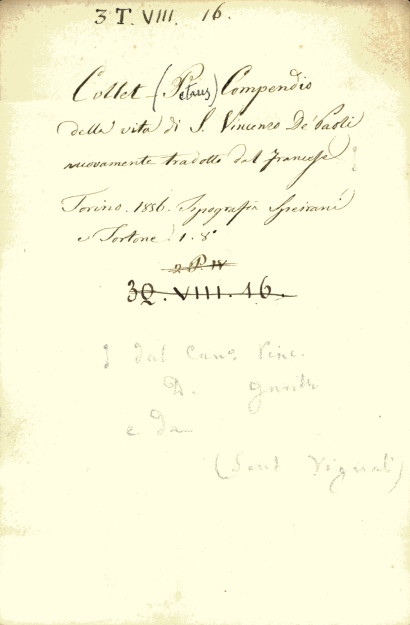 3 T. VIII. 16.
Collet (Petrus) Compendio
della vita di S. Vincenzo De' Paoli
nuovamente tradotto dal francese
Torino. 1836. Tipografia Speirani
e Tortone 1. 8°
2 P. IV
3Q. VIII. 16.
dal Can.º Vinc.
D.
e da